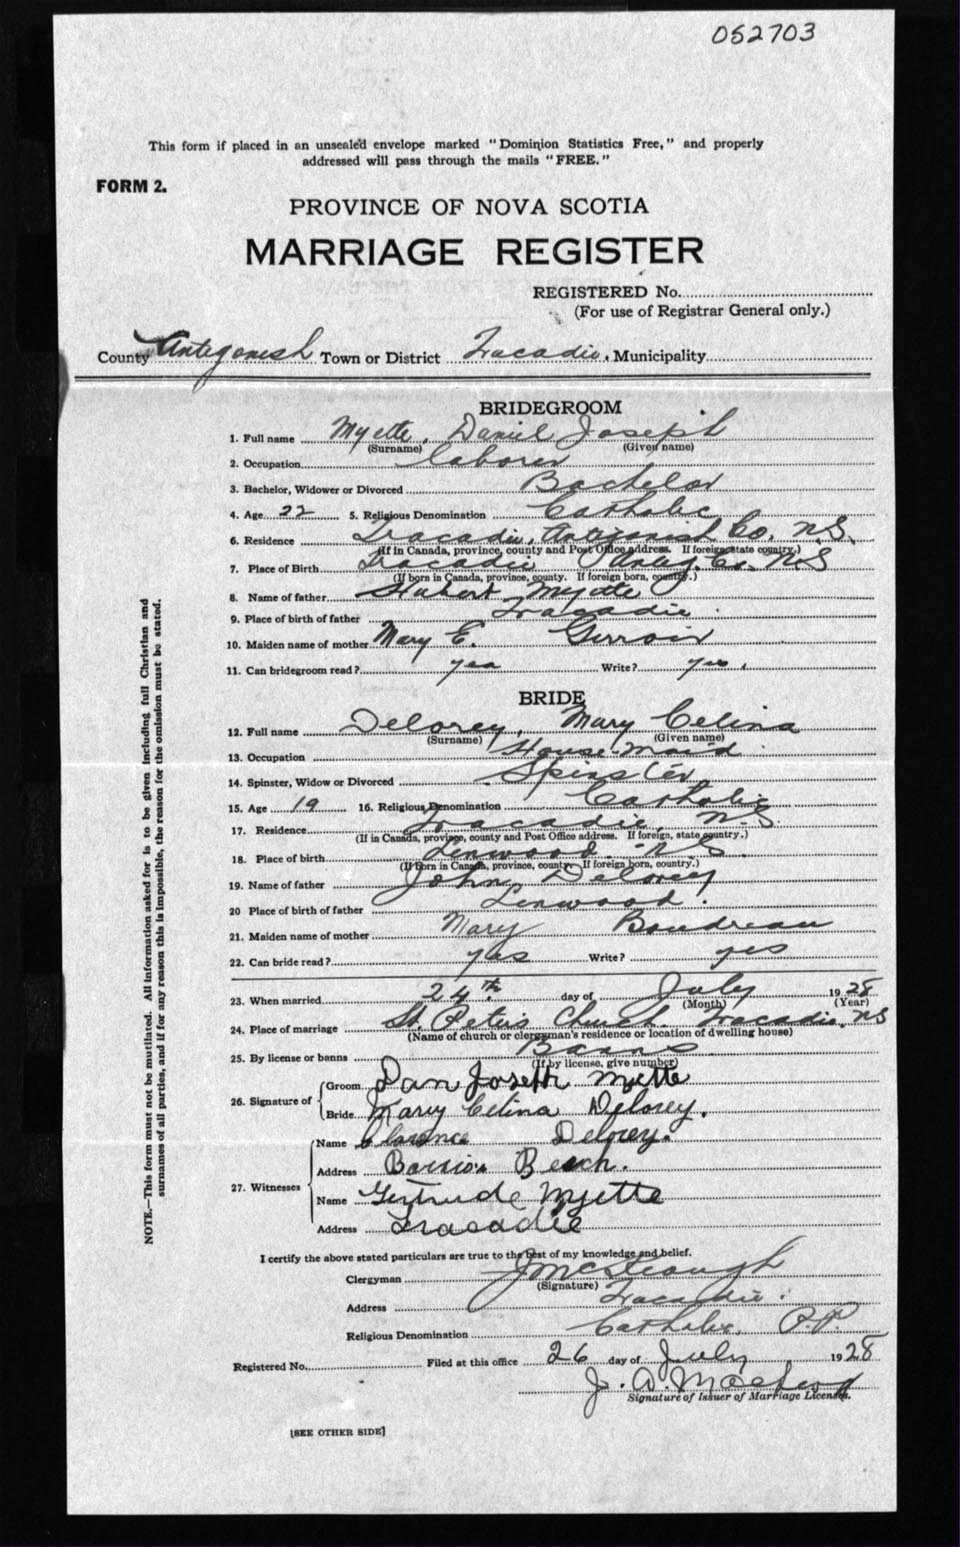 052703
This form if placed in an unsealed envelope marked "Dominion Statistics Free," and properly
addressed will pass through the mails "FREE."
FORM 2.
PROVINCE OF NOVA SCOTIA
MARRIAGE REGISTER
REGISTERED No.
(For use of Registrar General only.)
County Antigonish Town or District Tracadie, Municipality
BRIDEGROOM
1. Full name Myette, Daniel Joseph
(Surname) (Given name)
2. Occupation laborer
3. Bachelor, Widower or Divorced Bachelor
4. Age 22 5. Religious Denomination Catholic
6. Residence Tracadie, Antigonish Co. N.S.
(If in Canada, province, county and Post Office address. If foreign state country.)
7. Place of Birth Tracadie Antig. Co. N.S
(If born in Canada, province, county. If foreign born, country.)
8. Name of father Hubert Myette
9. Place of birth of father Tracadie
10. Maiden name of mother Mary E. Gerroir
11. Can bridegroom read? yea Write? yes
BRIDE
12. Full name Delorey, Mary Celina
(Surname) (Given name)
13. Occupation House-maid
14. Spinster, Widow or Divorced Spinster
15. Age 19 16. Religious Denomination Catholic
17. Residence Tracadie, N.S
(If in Canada, province, county and Post Office address. If foreign, state country.)
18. Place of birth Linwood. N.S.
(If born in Canada, province, county. If foreign born, country.)
19. Name of father John Delorey
20 Place of birth of father Linwood.
21. Maiden name of mother Mary Boudreau
22. Can bride read? yes Write? yes
23. When married 24th day of July 1928
(Month) (Year)
24. Place of marriage St. Peter's Church. Tracadie, N.S
(Name of church or clergyman's residence or location of dwelling house)
25. By license or banns Banns
(If by license, give number)
26. Signature of
Groom Dan Joseph Myette
Bride Mary Celina Delorey.
27. Witnesses
Name Clarence Delorey.
Address Barrios Beach.
Name Gertrude Myette
Address Tracadie
I certify the above stated particulars are true to the best of my knowledge and belief.
Clergyman
(Signature)
Address Tracadie.
Religious Denomination Catholic, P.P.
Registered No. Filed at this office 26 day of July 1928
J. A.
Signature of Issuer of Marriage Licenses.
[SEE OTHER SIDE]
NOTE.—This form must not be mutilated. All information asked for is to be given including full Christian and
surnames of all parties, and if for any reason this is impossible, the reason for the omission must be stated.